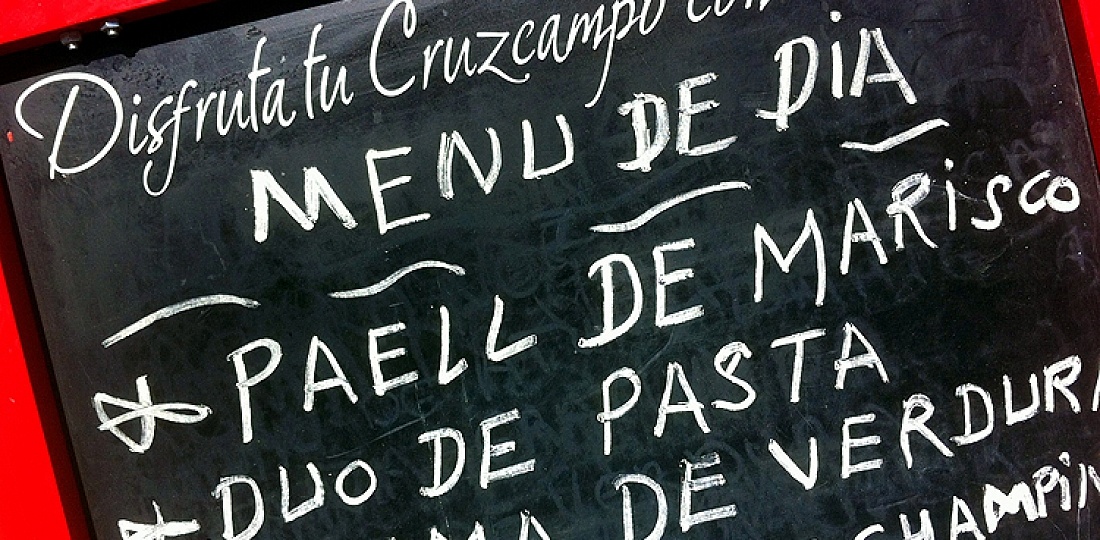 Disfruta tu Cruzcampo con
MENU DE DIA
PAELL DE MARISCO
DUO DE PASTA
DE VERDURA